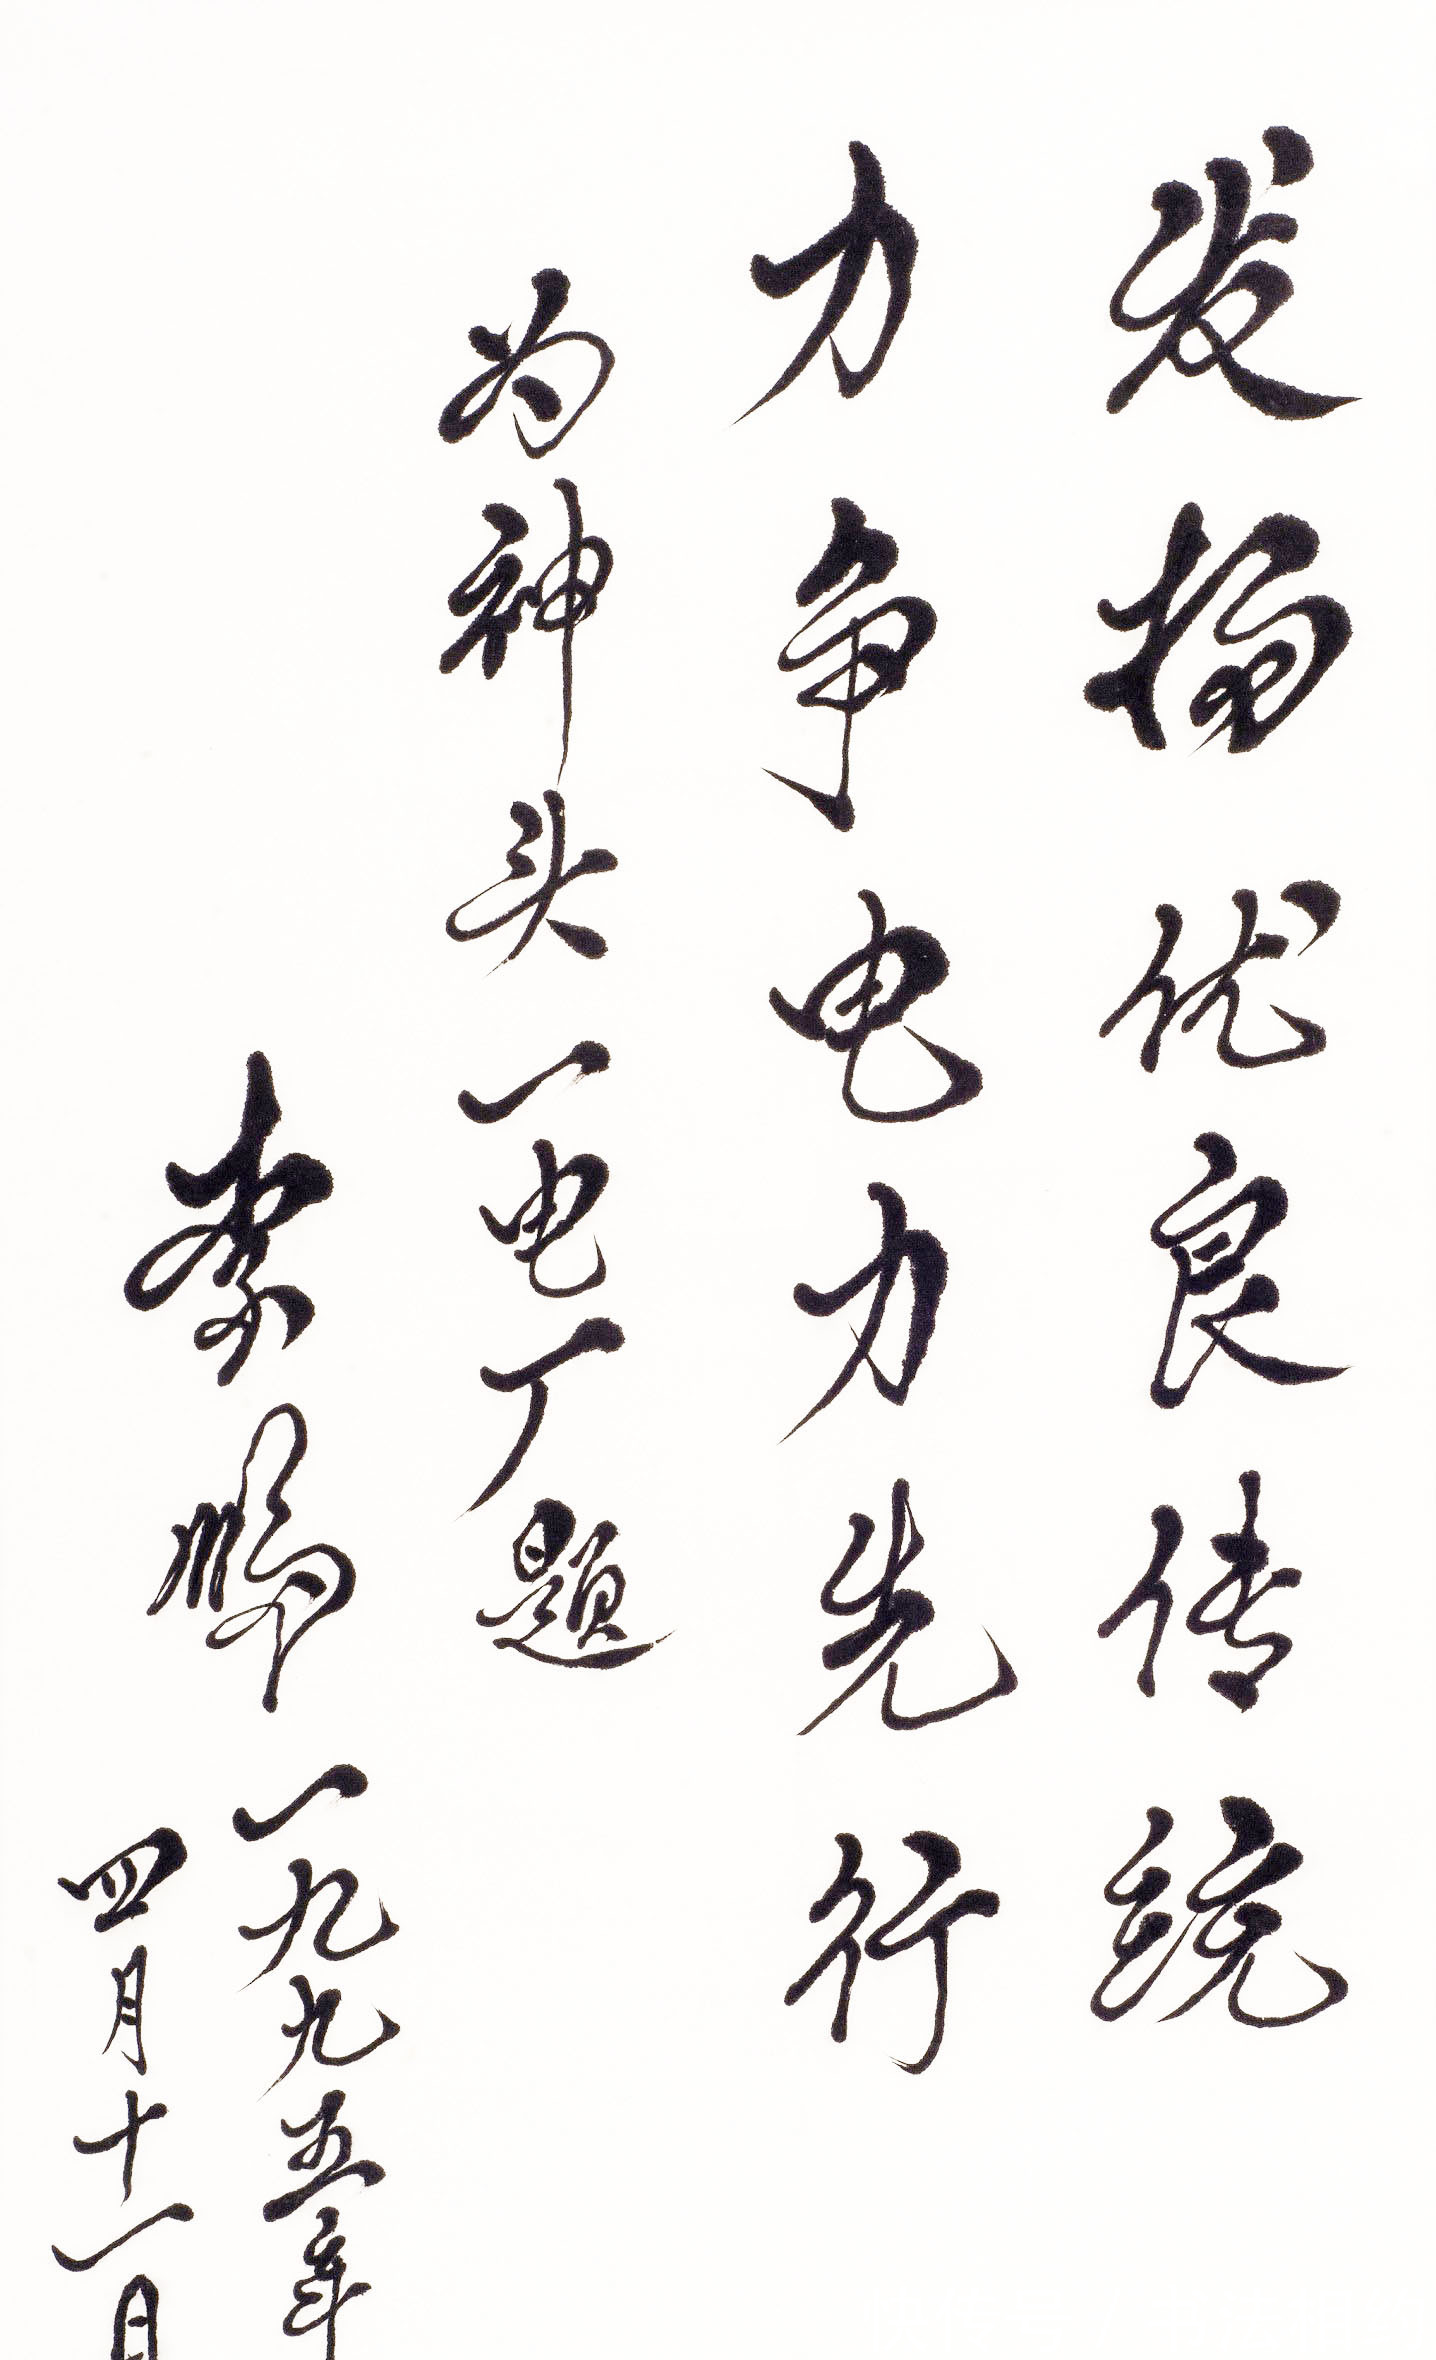 发扬优良传统
力争电力先行
为神头一电厂题
李鹏
一九九五年
四月十一日